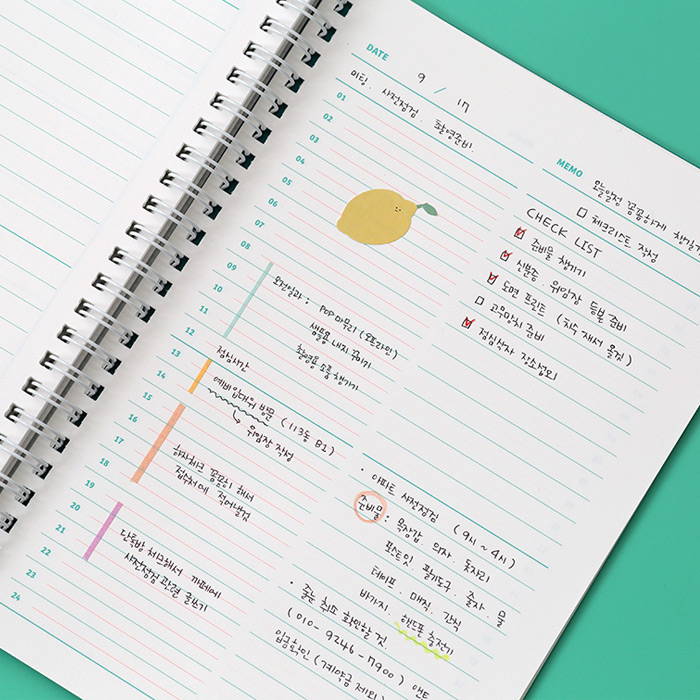 DATE
9 / 17
미팅 . 사전점검 . 촬영준비.
01
02
03
04
05
06
07
08
09
10
11
12
13
14
15
16
17
18
19
20
21
22
23
24
오전일과 : POP 마무리 (오프라인)
샘플용 내지 꾸미기
촬영용 소품 챙기기
점심시간
예비입대위 방문 (113동 B1)
↳ 위임장 작성
하자체크 꼼꼼히 해서
접수처에 적어낼것
단톡방 체크해서 까페에
사전점검 관련 글쓰기
MEMO
오늘일정 꼼꼼하게 챙길것
□ 체크리스트 작성
CHECK LIST
☑ 준비물 챙기기
☑ 신분증 . 위임장 등본 준비
☑ 도면 프린트 (치수 재서 올것)
□ 고무망치 준비
☑ 점심식사 장소섭외
· 아파트 사전점검 (9시 ~ 4시)
준비물 : 목장갑 의자 돗자리
포스트잇 . 필기도구 . 줄자 . 물
테이프 . 매직 . 간식
바가지 . 핸드폰 충전기
· 줄눈 취소 확인할 것
(010 - 9246 - 7900)
입금확인 (계약금 제외)